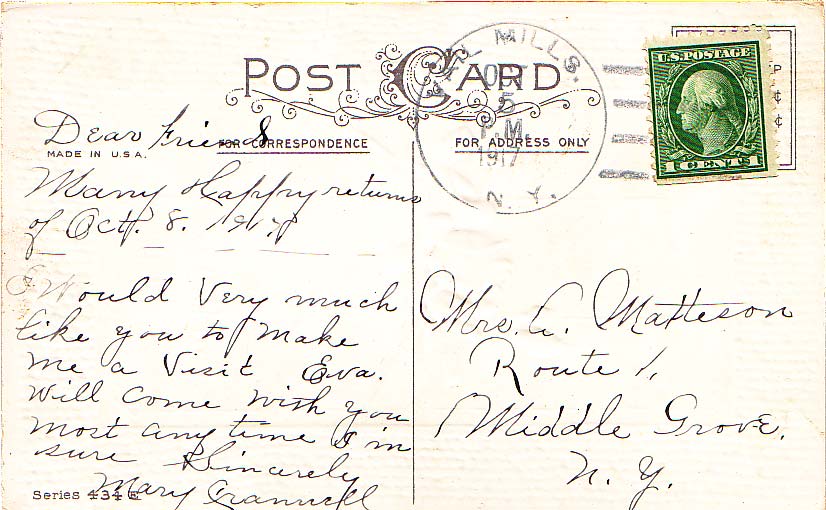 POST CARD
MILLS.
OCT
5
P.M.
1917
N.Y.
U.S. POSTAGE
1 CENTS 1
FOR CORRESPONDENCE
FOR ADDRESS ONLY
MADE IN U.S.A.
Dear Friend
Many Happy returns
of Oct. 8. 1917
Would Very much
like you to Make
me a Visit Eva.
Will Come with you
most any time I'm
sure Sincerely
Mary
Series 434 E
Mrs. A. Matteson
Route 1,
Middle Grove,
N.Y.